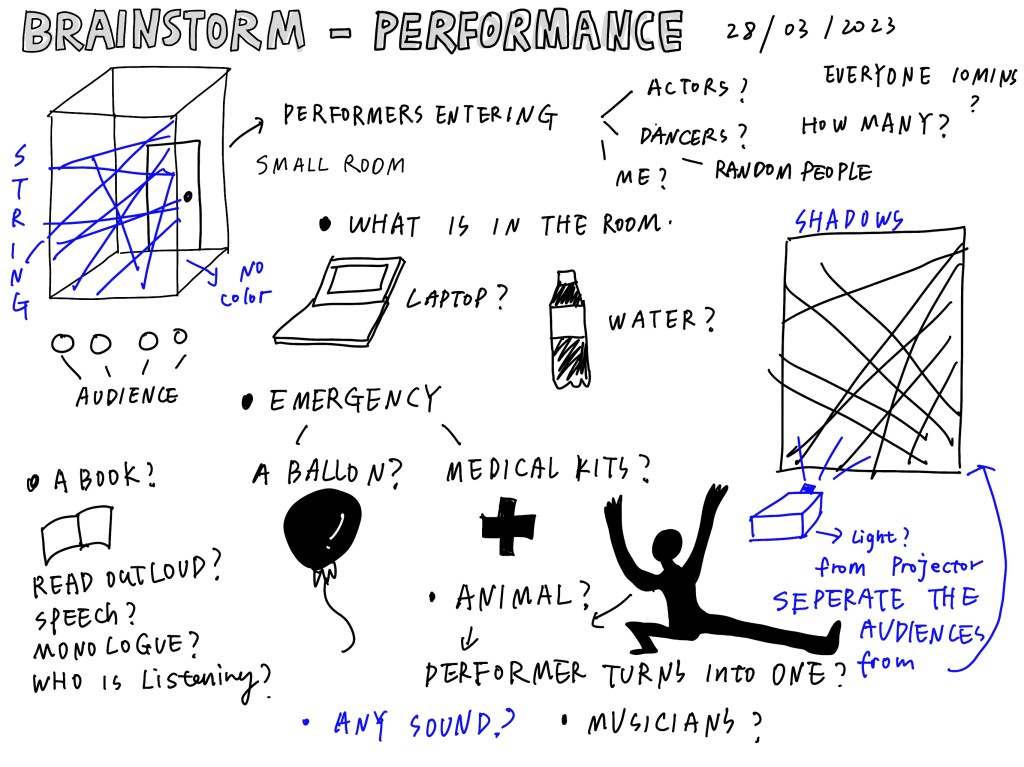 BRAINSTORM - PERFORMANCE 28/03/2023
STRING
NO
color
AUDIENCE
PERFORMERS ENTERING
SMALL ROOM
ACTORS?
DANCERS?
ME? — RANDOM PEOPLE
EVERYONE 10MINS
?
HOW MANY?
• WHAT IS IN THE ROOM.
LAPTOP?
WATER?
SHADOWS
• EMERGENCY
A BALLON?
MEDICAL KITS?
• A BOOK?
READ OUTLOUD?
SPEECH?
MONOLOGUE?
WHO is Listeniny?
• ANIMAL?
PERFORMER TURNS into ONE?
Light?
from Projector
SEPERATE THE
AUDIENCES
from
• ANY SOUND?
• MUSICIANS?